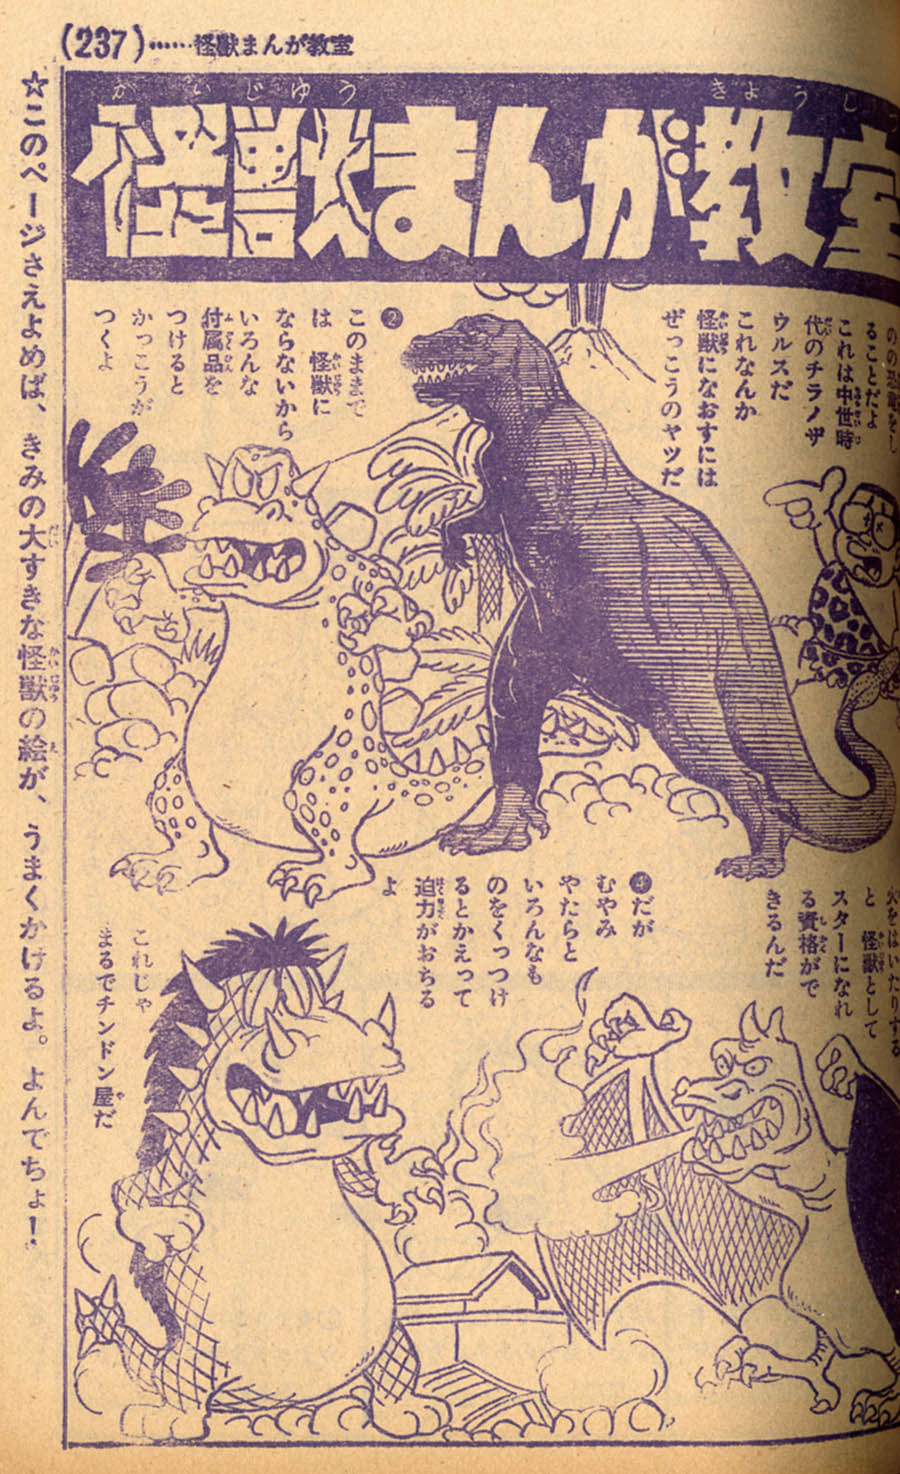 (237)……怪獣まんが教室
かいじゅう きょうし
怪獣まんが教室
☆このページさえよめば、きみの大すきな怪獣の絵が、うまくかけるよ。よんでちょ!
ることだよ
これは中世時
代のチラノザ
ウルスだ
これなんか
怪獣になおすには
ぜっこうのヤツだ
❷
このままで
は 怪獣に
ならないから
いろんな
付属品を
つけると
かっこうが
つくよ
火をはいたりする
と 怪獣として
スターになれ
る資格がで
きるんだ
❹だが
むやみ
やたらと
いろんなも
のをくっつけ
るとかえって
迫力がおちる
よ
これじゃ
まるでチンドン屋だ